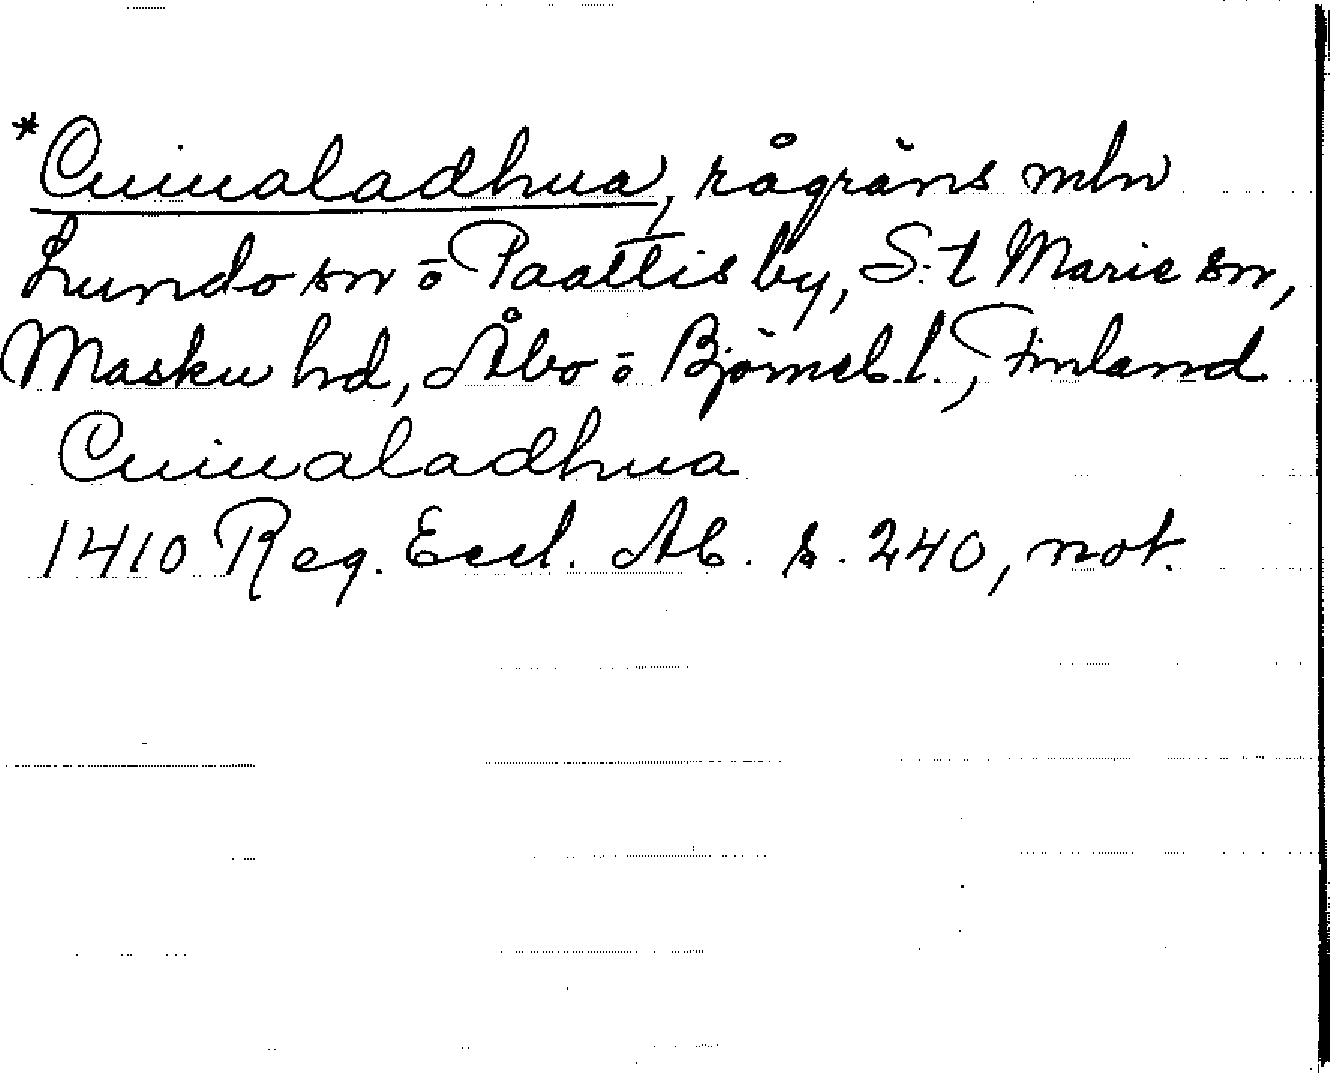 *Cuiualadhua, rågräns mln
Lundo sn o Paattis by, S:t Marie sn,
Masku hd, Åbo o Björneb. l., Finland
Cuiualadhua
1410 Reg. Eccl. Ab. s. 240, not.